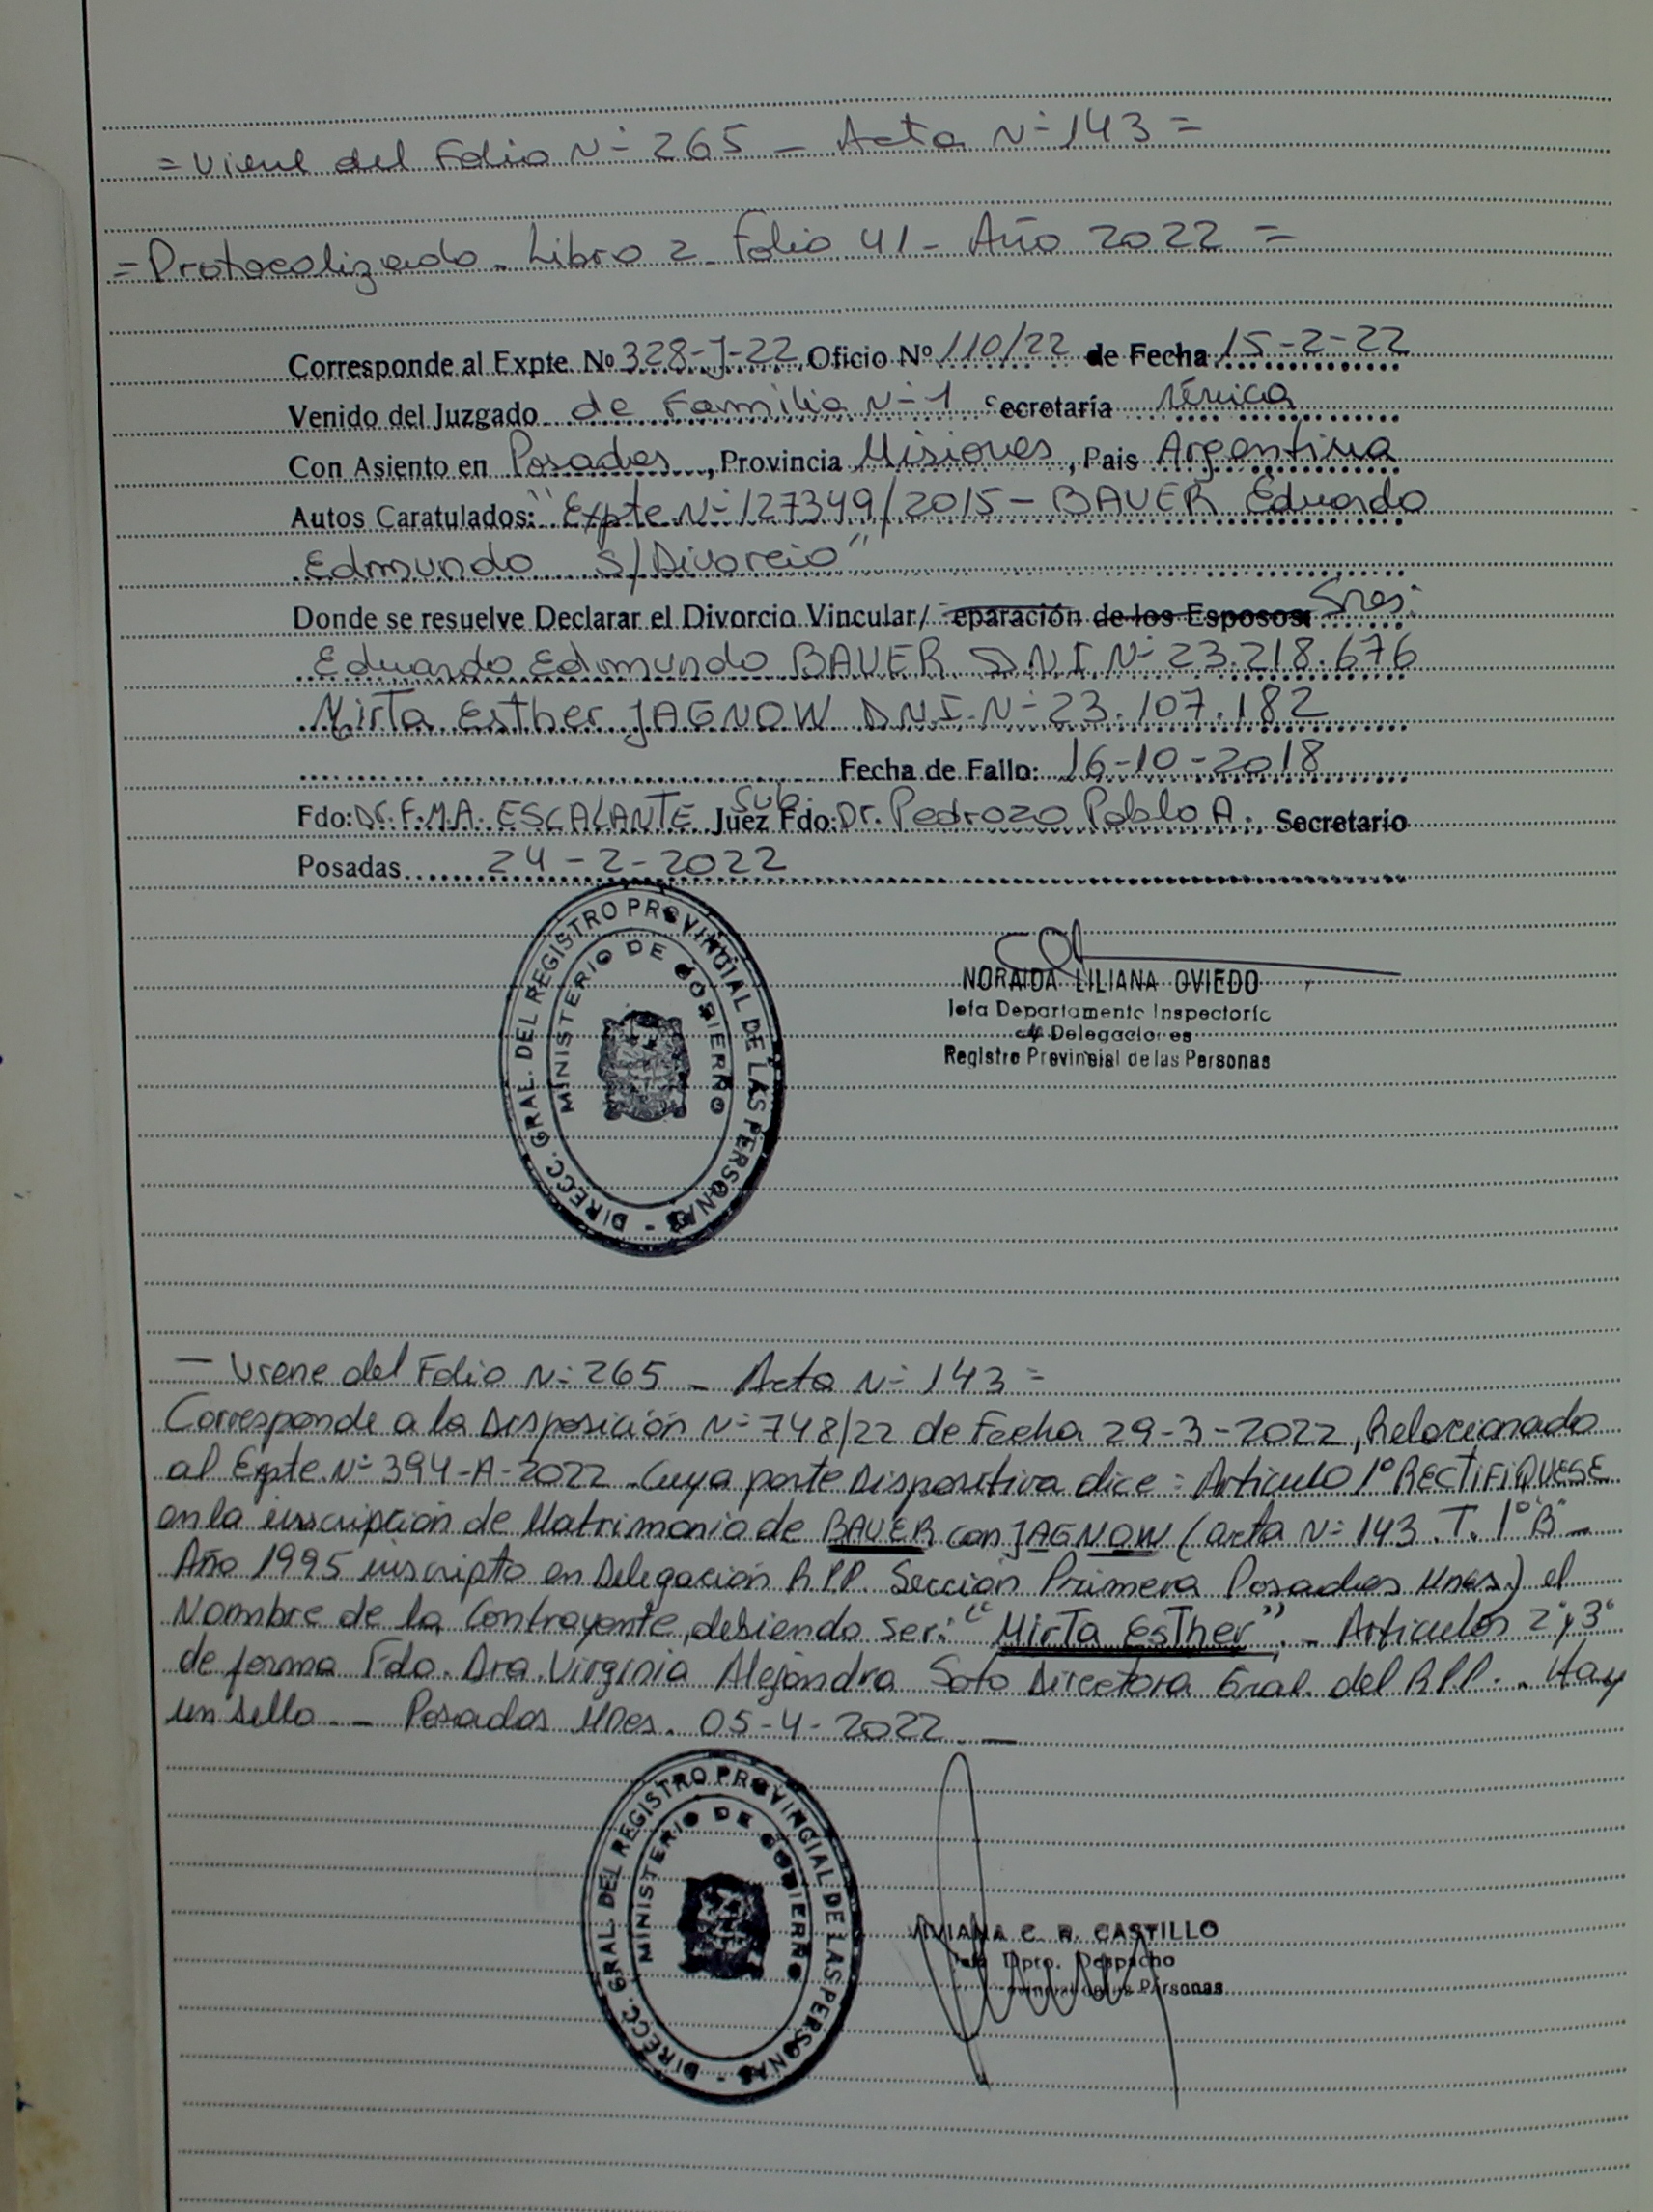 = Viene del Folio Nº 265 - Acta Nº 143 =
= Protocolizado - Libro 2 - Folio 41 - Año 2022 =
Corresponde al Expte. Nº 328-J-22 Oficio Nº 110/22 de Fecha 15-2-22
Venido del Juzgado de Familia Nº 1 Secretaría Única
Con Asiento en Posadas, Provincia Misiones, Pais Argentina
Autos Caratulados: "Expte. Nº 127349/2015 - BAUER Eduardo
Edmundo S/Divorcio"
Donde se resuelve Declarar el Divorcio Vincular/ eparación de los Esposos Sres:
Eduardo Edmundo BAUER D.N.I Nº 23.218.676
Mirta Esther JAGNOW D.N.I. Nº 23.107.182
Fecha de Fallo: 16-10-2018
Fdo: Dr. F.M.A. ESCALANTE Sub. Juez Fdo: Dr. Pedrozo Pablo A. Secretario
Posadas 24-2-2022
DIRECC. GRAL. DEL REGISTRO PROVINCIAL DE LAS PERSONAS -
MINISTERIO DE GOBIERNO
NORAIDA LILIANA OVIEDO
Jefa Departamento Inspectoría
Delegaciones
Registro Provincial de las Personas
- Viene del Folio Nº 265 - Acta Nº 143 =
Corresponde a la Disposición Nº 748/22 de Fecha 29-3-2022, Relacionado
al Expte. Nº 394-A-2022. Cuya parte Dispositiva dice: Articulo 1º RECTIFIQUESE
en la inscripción de Matrimonio de BAUER con JAGNOW (acta Nº 143. T. 1º "B" -
Año 1995 inscripto en Delegación R.P.P. Sección Primera Posadas Mnes.) el
Nombre de la Contrayente, debiendo ser: "Mirta Esther". - Articulos 2º y 3º
de forma Fdo. Dra. Virginia Alejandra Soto Directora Gral. del R.P.P. . Hay
un sello. - Posadas Mnes. 05-4-2022. -
DIRECC. GRAL. DEL REGISTRO PROVINCIAL DE LAS PERSONAS -
MINISTERIO DE GOBIERNO
VIVIANA C. R. CASTILLO
Jefa Dpto. Despacho
Personas